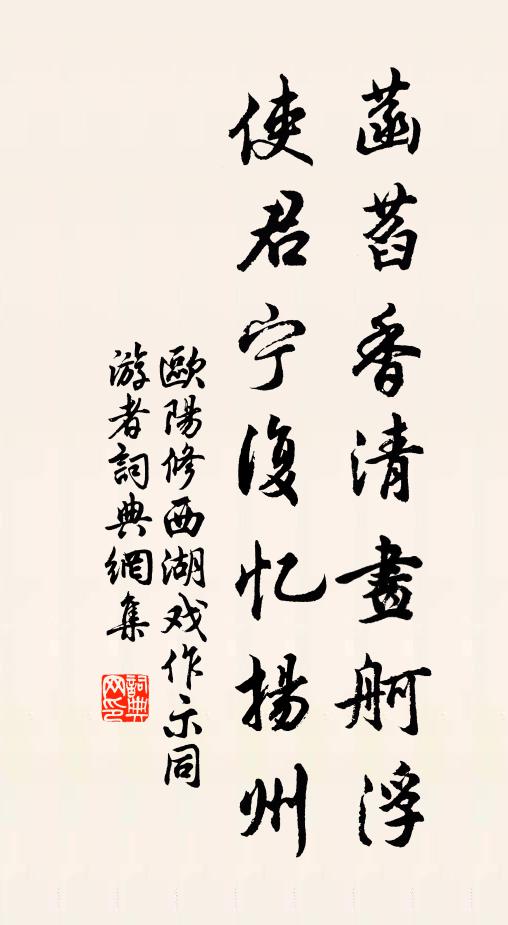 菡萏香清畫舸浮
使君宁復忆揚州
歐陽修西湖戏作示同
游者詞典網集
詞典网印